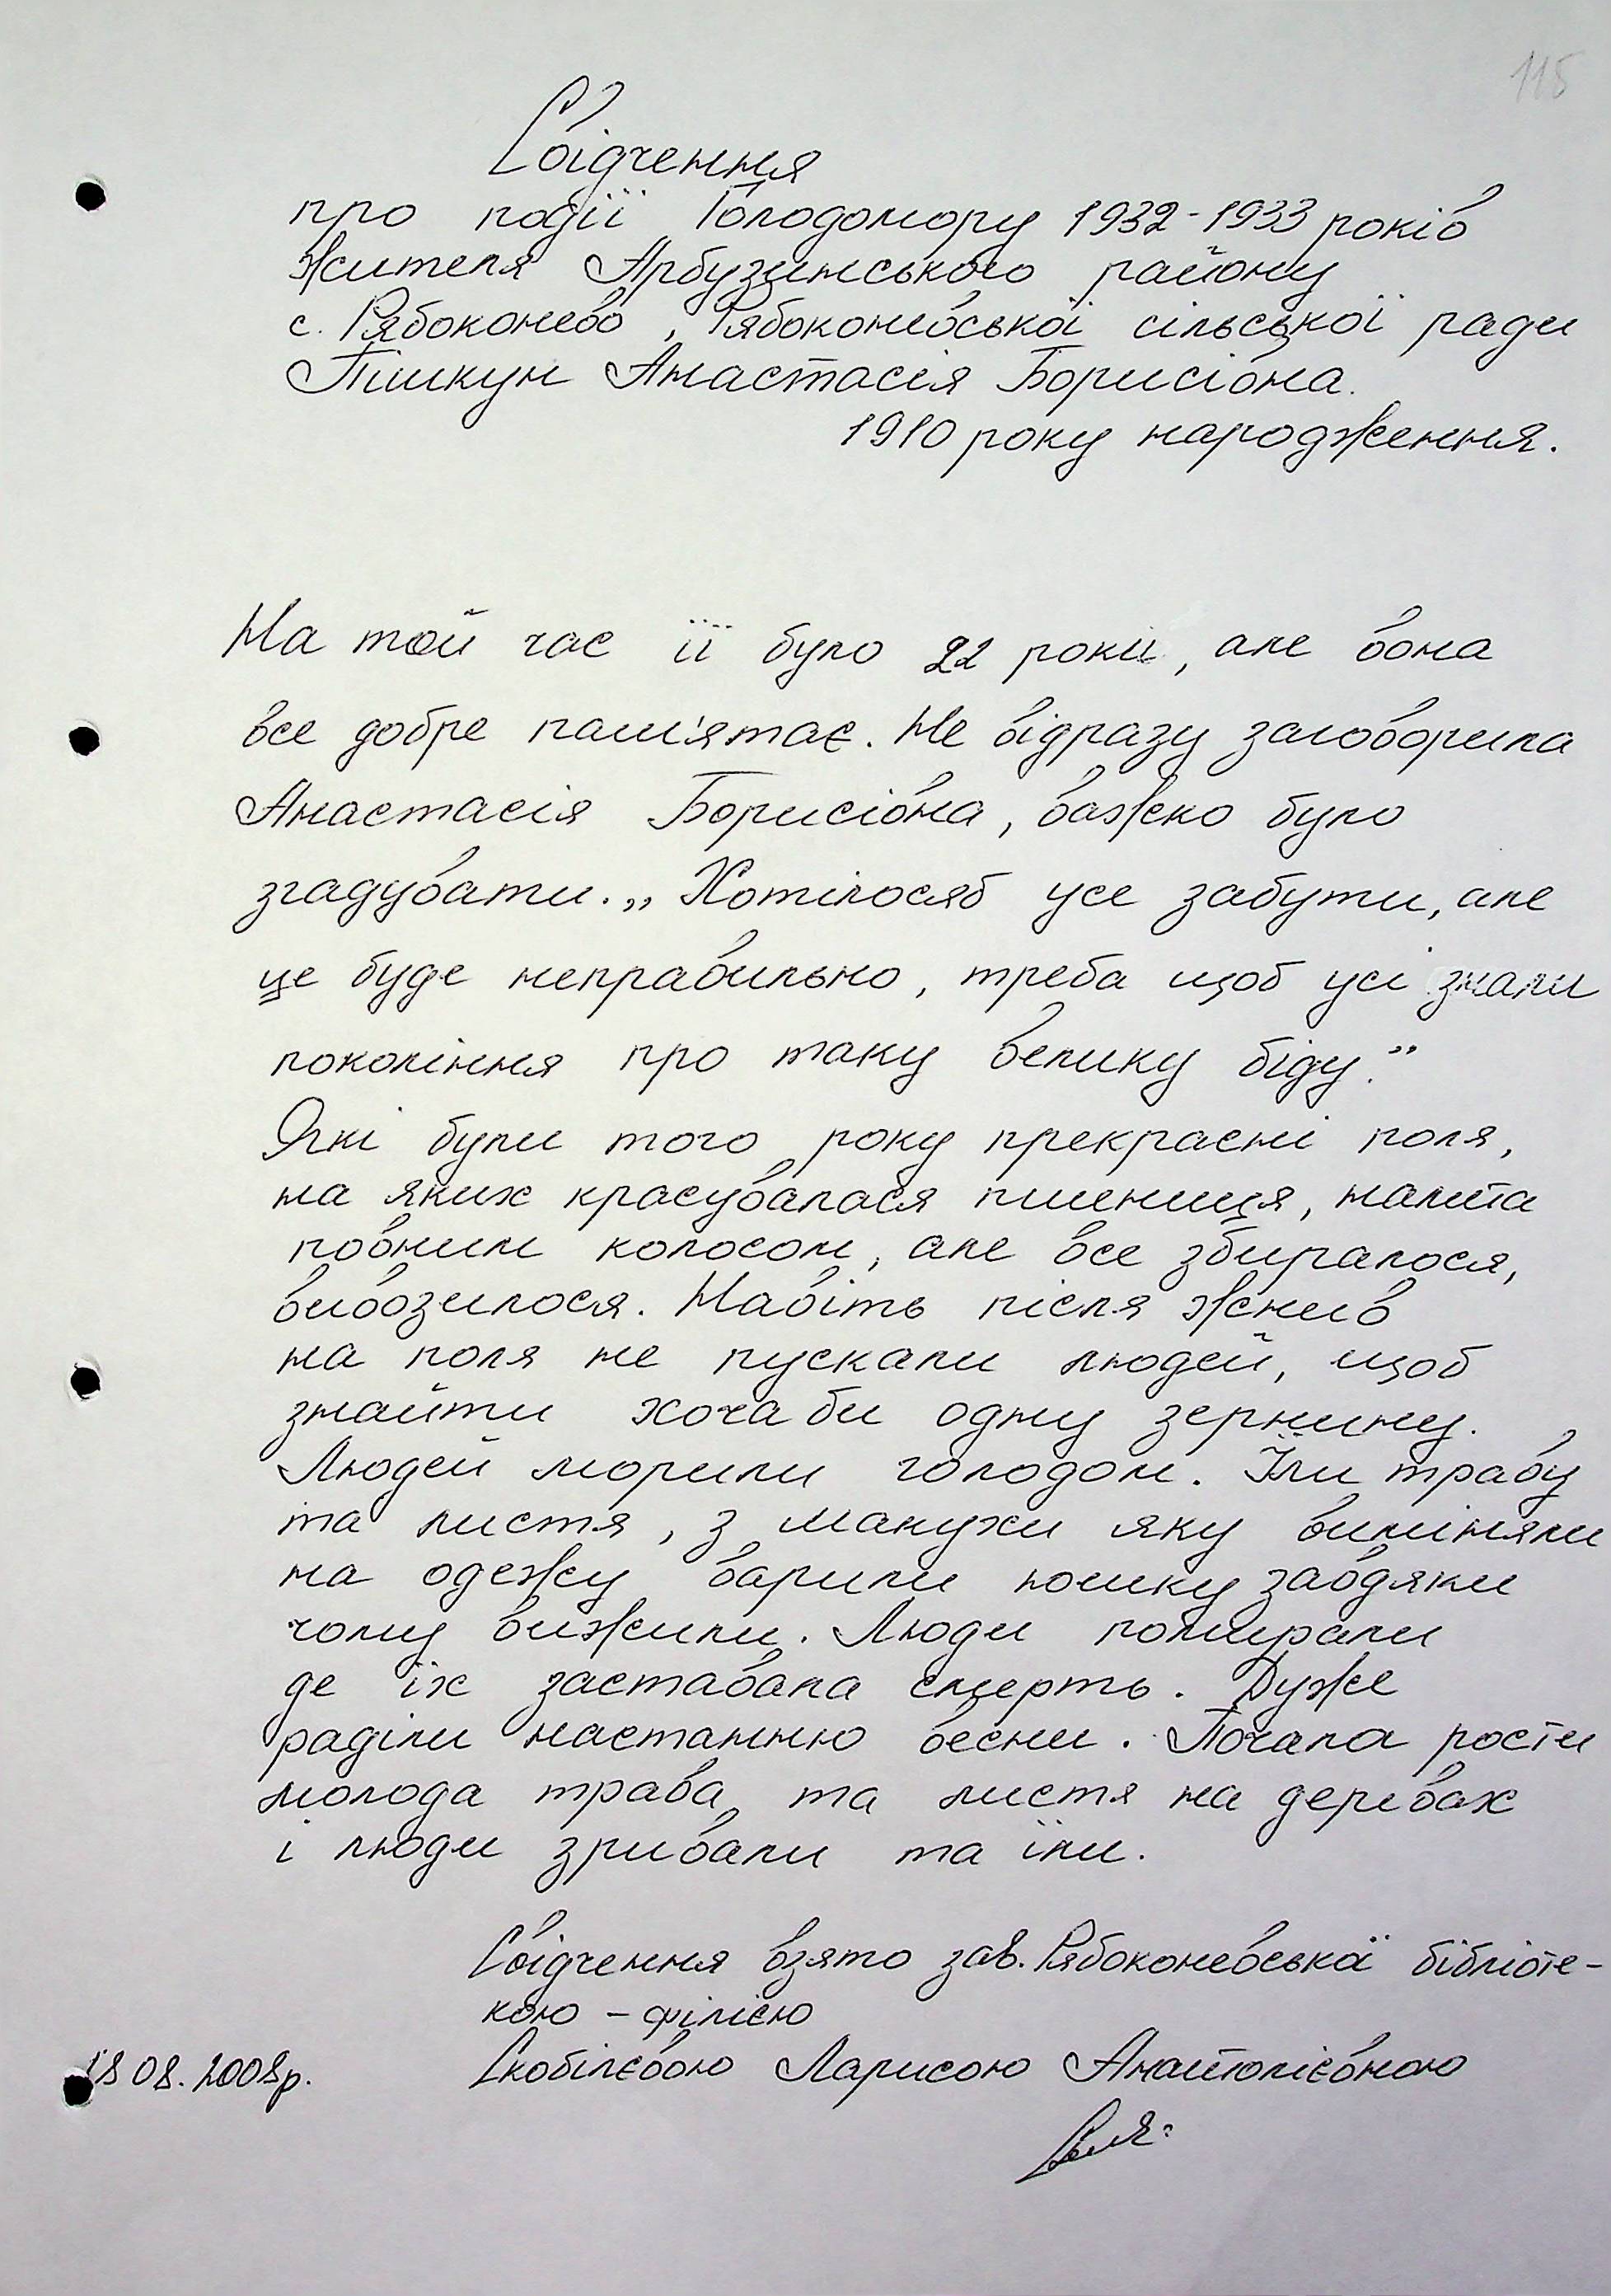 115
Свідчення
про події Голодомору 1932-1933 років
жителя Арбузинського району
с. Рябоконево, Рябоконевської сільської ради
Пішкун Анастасія Борисівна.
1910 року народження.
На той час її було 22 роки, але вона
все добре пам'ятає. Не відразу заговорила
Анастасія Борисівна, важко було
згадувати. „Хотілосяб усе забути, але
це буде неправильно, треба щоб усі знали
покоління про таку велику біду."
Які були того року прекрасні поля,
на яких красувалася пшениця, налита
повним колосом, але все збиралося,
вивозилося. Навіть після жнив
на поля не пускали людей, щоб
знайти хоча би одну зернину.
Людей морили голодом. Їли траву
та листя, з макухи яку виміняли
на одежу варили юшку завдяки
чому вижили. Люди помирали
де їх заставала смерть. Дуже
раділи настанню весни. Почала рости
молода трава та листя на деревах
і люди зривали та їли.
Свідчення взято зав. Рябоконевської бібліоте-
кою - філією
18 08. 2008р. Скобілєвою Ларисою Анатоліївною